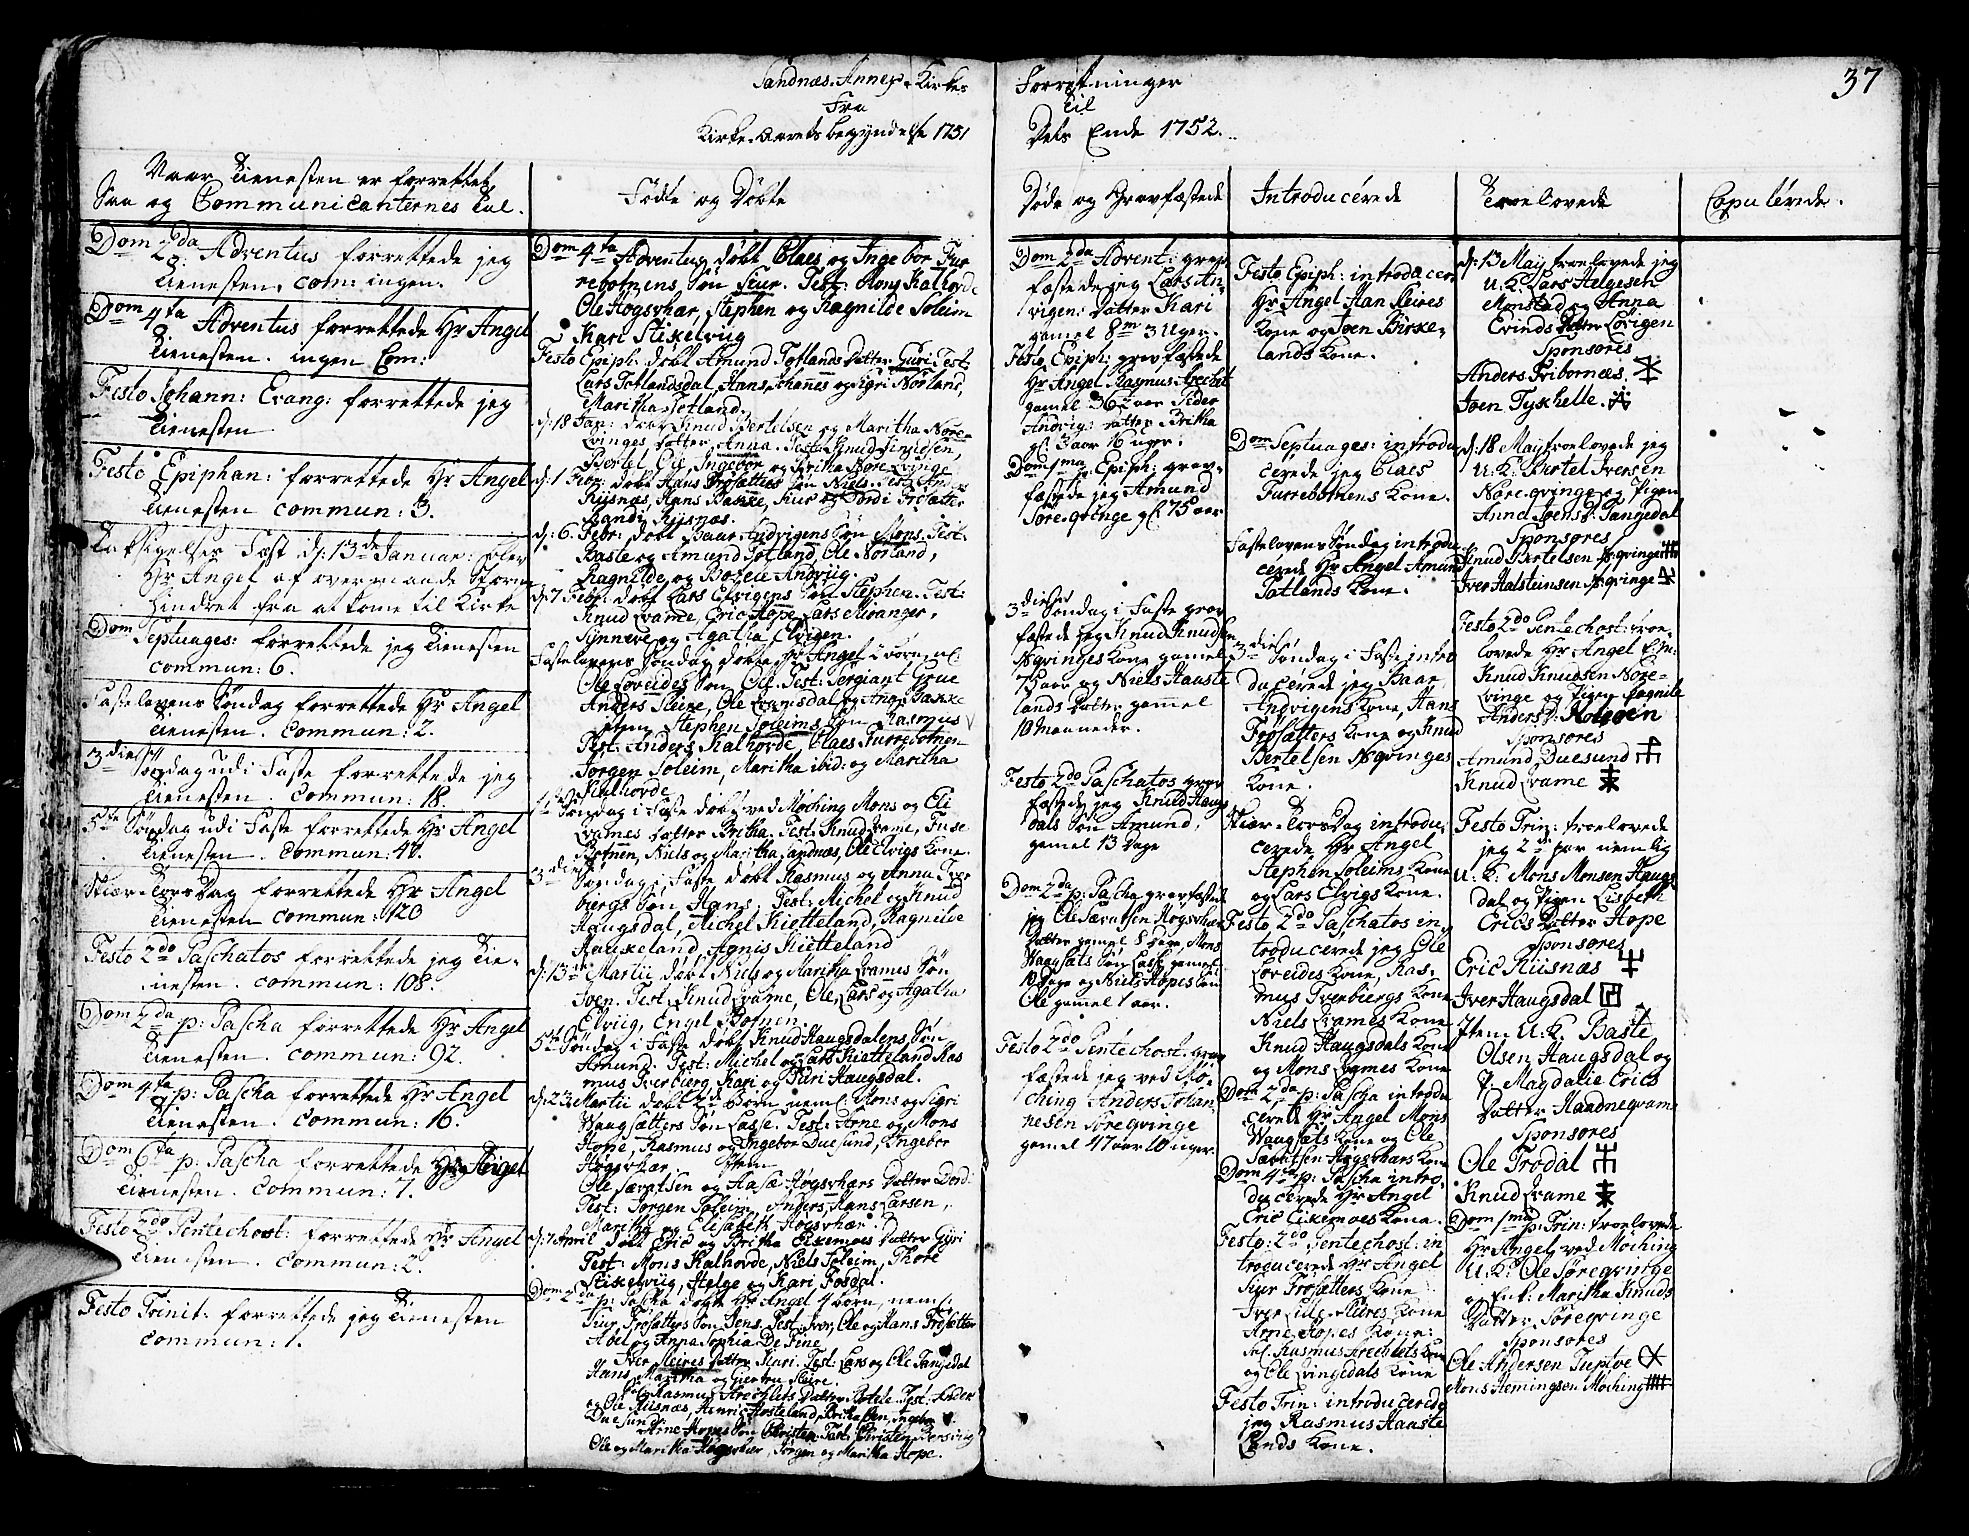 Sandnæs Annex-Kirkes
Fra
Kirke-aarets begyndelse 1751
Forretninger
til
Dets Ende 1752.
37
Naar Tienesten er forrettet,
Saa og Communicanternes Tal.
Dom 2da Adventus forrettede jeg
Tienesten. Com: ingen.
Dom 4ta Adventus forrettede Hr Angel
Tienesten. ingen Com:
Festo Johann: Evang: forrettede jeg
Tienesten
Festo Epiphan: forrettede Hr Angel
Tienesten commun: 3.
Taksigelses Fæst d: 13de Januar: blev
Hr Angel af overmaade Storm
Hindret fra at kome til Kirke
Dom Septuages: forrettede jeg Tienesten
commun: 6.
Fastelavens Søndag forrettede Hr Angel
Tienesten. Commun: 2.
3die Søndag udi Faste forrettede jeg
Tienesten. Commun: 18.
5te Søndag udi Faste forrettede Hr Angel
Tienesten. Commun: 41.
Skiær-TorsDag forrettede Hr Angel
Tienesten commun: 120
Festo 2do Paschatos forrettede jeg Tie-
nesten. commun: 108.
Dom 2da p: Pascha forrettede Hr Angel
Tienesten. commun: 92.
Dom 4ta p: Pascha forrettede Hr Angel
Tienesten. commun: 16.
Dom 6ta p: Pascha forrettede Hr Angel
Tienesten. Commun: 7.
Festo 2do Pentechost: forrettede Hr Angel
Tienesten. Commun: 2.
Festo Trinit: forrettede jeg Tienesten
Commun: 1.
Fødte og Døbte
Dom 4ta Adventus døbt Claes og Ingebor Fur
rebotnens Søn Siur. Test: Mons Kalhovde
Ole Hogsvhær, Stephen og Ragnilde Soleim
Kari Stikelvug
Festo Epiph: døbt Amund Totlands Datter Guri. Test:
Lars Totlandsdal, Hans, Johanes og Sigri Norland,
Maritha Totland.
d: 18 Jan: døbt Knud Bertelsen og Maritha Nore-
qvinges Datter Anna. Test: Knud
Bertel, Eli, Ingebor og Britha Nore qvinge
d: 1 Febr: døbt Hans Frøsætters Søn Niels. Test: Anders
Riisnæs, Hans Bakke, Siur og Jordi Frøsætter
Randi Riisnæs.
d: 6 Febr: døbt Baar Andvigens Søn Mons. Test:
Baste og Amund Totland, Ole Norland,
Ragnilde og Bozele Andviig.
d: 7 Febr: døbt Lars Elvigens Søn Stephen. Test:
Knud Qvame, Eric Hope, Lars Miranger,
Synneve og Agatha Elvigen.
Fastelavens Søndag døbte Hr Angel 2 børn,
Ole Loveides Søn Ole. Test: Sergiant Grue
Anders Sleire, Ole
item Stephen Soleims Søn Rasmus
Test: Anders Kalhovde, Claes Furrebotnen
Jørgen Soleim, Maritha ibid: og Maritha
Kalhovde
Søndag i Faste døbt ved Møching Mons og Eli
Qvames Datter Britha. Test: Knud Qvame,
Botnen, Niels og Maritha Sandnæs, Ole Elvigs Kone.
3die Søndag i Faste døbt Rasmus og Anna Tver
bergs Søn Hans. Test: Michel og Knud
Haugsdal, Michel Kietteland, Ragnilde
Haukeland, Agnis Kietteland
d: 13de Martii døbt Niels og Maritha Qvames Søn
Iven. Test. Knud Qvame, Ole, Lars og Agatha
Elviig, Engel Botnen
5te Søndag i Faste døbt Knud Haugsdalens Søn
Amund. Test: Michel og Lars Kietteland Ras
mus Tverberg, Kari og Guri Haugsdal.
d: 23 Martii døbt 2de Børn neml: Mons og Sigri
Waagsætters Søn Lasse. Test: Arne og Mons
Hope, Rasmus og Ingebor Duesund, Engebor
Hogsvhær. Item
Ole Sævatsen og Aasæ Hogsvhærs Datter Dordi
Test: Jørgen Soleim, Anders, Hans Larsen,
Maritha og Elisabeth Hogsvhær.
d: 7 April døbt Eric og Britha Eikemoes Datter Guri
Test: Mons Kalhovde, Niels Soleim, Thore
Stikelviig, Helge og Kari Fosdal.
Dom 2da p: Pascha døbt Hr Angel 4 børn, neml:
Siur Frøsætters Søn Jens. Test: Iver, Ole og Hans Frøsætter
Abel og Anna Sophia De Fine
Iver Sleires Datter Sinri. Test: Lars og Ole Tangedal
Hans, Maritha og Giertru Sleire.
Rasmus Datter Botele. Test: Anders
og Ole Riisnæs, Henric Hosteland,
Duesund
Arne Hopes Søn Christen. Test: Christen
Ole og Maritha Hogsvhær, Jørgen og Maritha Hope.
Døde og Gravfæstede
Dom 2da Advent: grav
fæstede jeg Lars An-
vigen: Datter Kari
gamel 8m 3 Uger.
Festo Epiph: gravfæstede
Hr Angel Rasmus
gamel 36 aar Peder
Andvig: Datter Britha
gl: 3 aar 16 uger.
Dom 1ma p: Epiph: grav-
fæstede jeg Amund
Søreqvinge gl: 75 aar
3die Søndag i Faste grav
fæstede jeg Knud Knudsen
N: qvinges Kone gamel
75 aar og Niels Hauste
lands Datter gamel
10 maaneder.
Festo 2do Paschatos grav
fæstede jeg Knud Haugs
dals Søn Amund,
gamel 13 Dage
Dom 2da p: Pascha gravfæstede
jeg Ole Sævatsen Hogsvhærs
Datter gamel, Mons
Waagsæts Søn Lasse gamel
Dage og Niels Hopes Søn
Ole gamel 1 aar.
Festo 2do Pentechost: grav
fæstede jeg ved Mø-
ching Anders Johan-
nesen Søreqvinge
gamel 47 aar 10 uger.
Introducerede
Festo Epiph: introducer:
Hr Angel Hans Sleires
Kone og Joen Birke-
lands Kone.
Dom Septuages: introdu
cerede jeg Claes
Furrebotnens Kone.
Fastelavens Søndag introdu
cerede Hr Angel Amund
Totlands Kone.
3die Søndag i Faste intro
ducerede jeg Baar
Andvigens Kone, Hans
Frøsætters Kone og Knud
Bertelsen N:qvinges
Kone.
Skiær-TorsDag introdu-
cerede Hr Angel
Stephen Soleims Kone
og Lars Elvigs Kone.
Festo 2do Paschatos in
troducerede jeg Ole
Loveides Kone, Ras-
mus Tverbergs Kone
Niels Qvames Kone
Knud Haugsdals Kone
og Mons Qvames Kone
Dom 2da p: Pascha introdu
cerede Hr Angel Mons
Waagsæts Kone og Ole
Sævatsen Hogsvhærs Kone
Dom 4ta p: Pascha intro-
ducerede Hr Angel
Eric Eikemoes Kone.
Festo 2do Pentechost: in
troducerede Hr Angel
Siur Frøsætters Kone
Iver Sleires Kone
Arne Hopes Kone.
Rasmus Kone
og Ole Qvingedals Kone
Festo Trin: introducerede
jeg Rasmus Hauste
lands Kone.
Troelovede
d: 13 May troelovede jeg
U.K: Lars Helgesen
Monstad og Anna
Evinds Datter Lovigen
Sponsores
Anders Tribornæs.
Joen Tyskhelle.
d: 18 May troelovede jeg
U.K: Bertel Iversen
Noreqvinge og Pigen
Anne Joensd: Tangedal
Sponsores
Knud Bertelsen N:qvinge
Iver Halsteinsen N:qvinge
Festo 2do Pentechost: troe-
lovede Hr Angel E:
Knud Knudsen Nore-
qvinge og Pigen Ragnile
Andersd:
Sponsores
Amund Duesund
Knud Qvame
Festo Trin: troelovede
jeg 2de par nemlig
U.K: Mons Monsen Haugs
dal og Pigen Lisbeth
Erics Datter Hope
Sponsores
Eric Riisnæs
Iver Haugsdal
Item U.K. Baste
Olsen Haugsdal og
P. Magdalie Erics
Datter Haandneqvame
Sponsores
Ole Trodal
Knud Qvame
Dom 1ma p: Trin: troelovede
Hr Angel ved Møching
U.K: Ole Søreqvinge
og Enk: Maritha Knuds
Datter Søreqvinge
Sponsores
Ole Andersen Tuptve
Mons Hemingsen Møching
Copulerede.